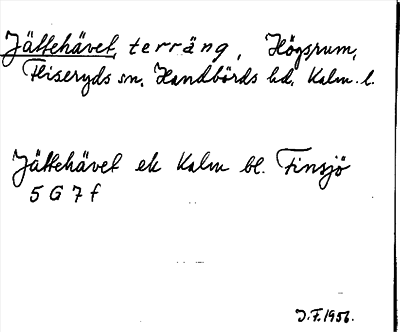 Jättehävet, terräng, Högsrum,
Fliseryds sn, Handbörds hd, Kalm. l.
Jättehävet ek Kalm bl. Finsjö
5 G 7 f
J.F. 1956.